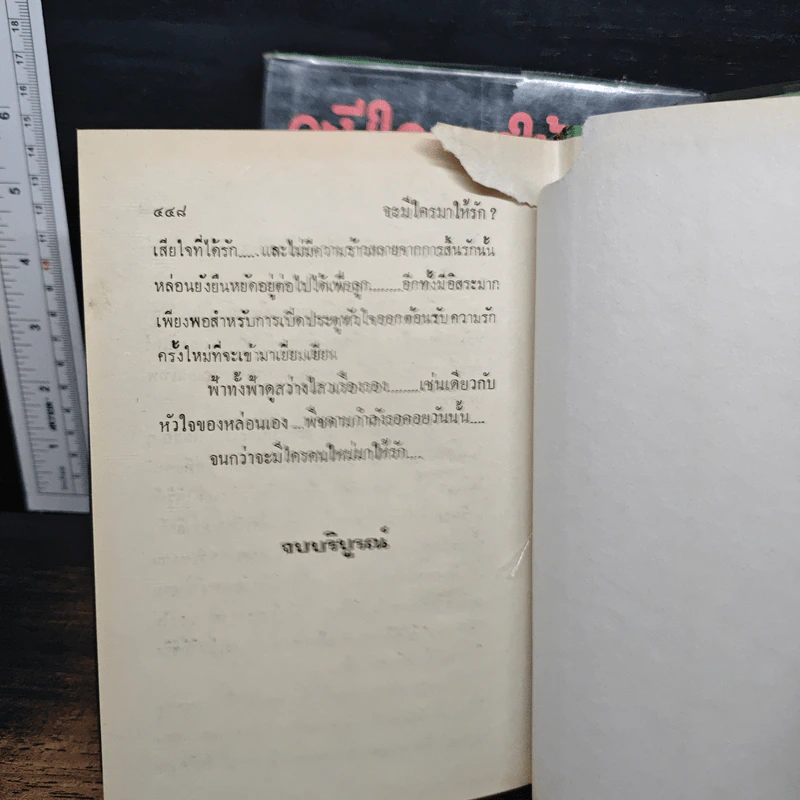 ๔๔๘ จะมีใครมาให้รัก ?
เสียใจที่ได้รัก..... และไม่มีความร้าวสลายจากการสิ้นรักนั้น
หล่อนยังยืนหยัดอยู่ต่อไปได้เพื่อลูก........อีกทั้งมีอิสระมาก
เพียงพอสำหรับการเปิดประตูหัวใจออกต้อนรับความรัก
ครั้งใหม่ที่จะเข้ามาเยี่ยมเยียน
ฟ้าทั้งฟ้าดูสว่างไสวเรืองรอง........เช่นเดียวกับ
หัวใจของหล่อนเอง ...พืชคามกำลังรอคอยวันนั้น....
จนกว่าจะมีใครคนใหม่มาให้รัก....
จบบริบูรณ์